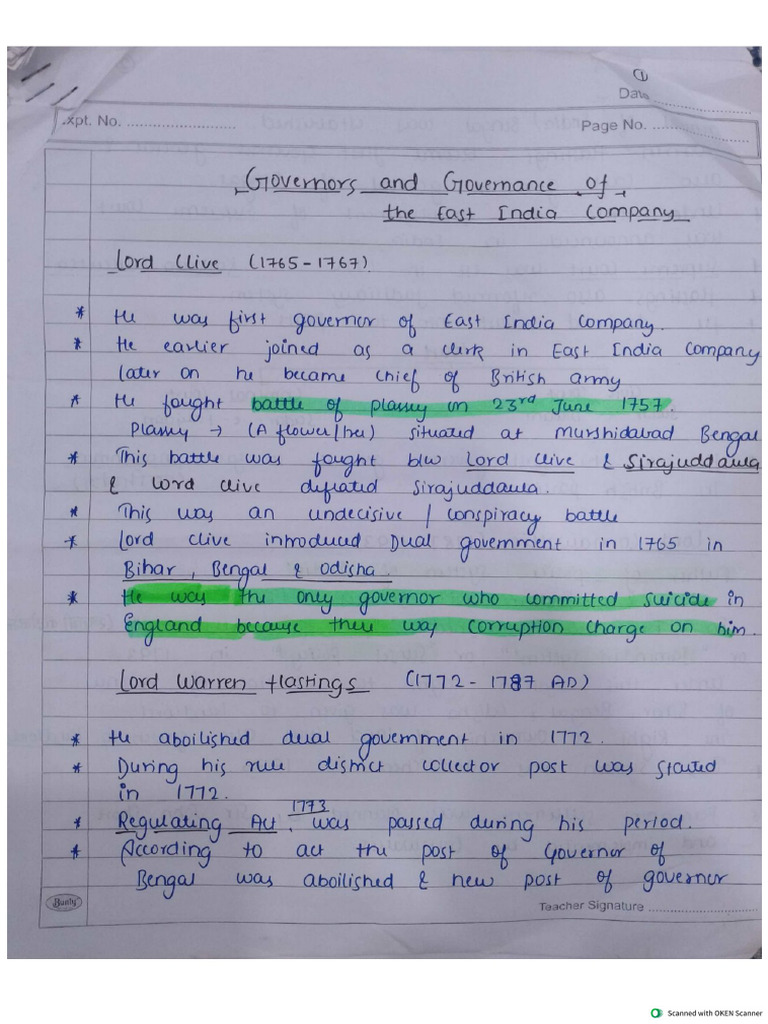 ①
Date ..................
Expt. No. ..........................
Page No. ..................
Governors and Governance of
the East India Company
Lord Clive (1765-1767)
* He was first governor of East India Company.
* He earlier joined as a clerk in East India Company
later on he became chief of British army
* He fought battle of plassy on 23rd June 1757.
Plassy → (A flower/tree) situated at Murshidabad Bengal
* This battle was fought b/w Lord Clive & Sirajuddaula
& Lord Clive defeated Sirajuddaula.
* This was an undecisive / conspiracy battle
* Lord Clive introduced Dual government in 1765 in
Bihar, Bengal & Odisha.
* He was the only governor who committed suicide in
England because there was corruption charge on him.
Lord Warren Hastings (1772-1787 AD)
* He aboilished dual government in 1772.
* During his rule district collector post was started
in 1772.
* Regulating Act 1773 was passed during his period.
* According to act the post of Governor of
Bengal was aboilished & new post of governor
Bunty
Teacher Signature ..........................
Scanned with OKEN Scanner